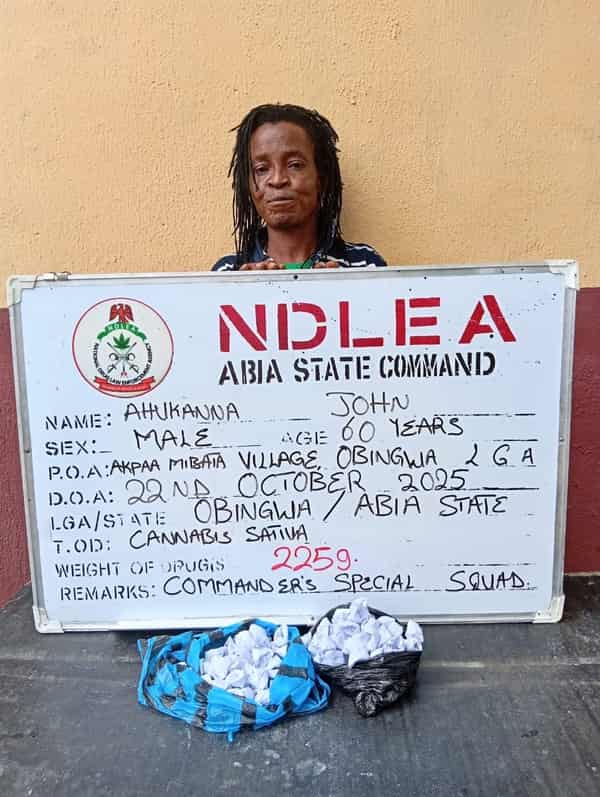 NDLEA
NDLEA
NATIONAL DRUG LAW ENFORCEMENT AGENCY
ABIA STATE COMMAND
NAME: AHUKANNA JOHN
SEX: MALE AGE 60 YEARS
P.O.A: AKPAA MIBATA VILLAGE, OBINGWA L G A
D.O.A: 22ND OCTOBER 2025
LGA/STATE OBINGWA / ABIA STATE
T.OD: CANNABIS SATIVA
WEIGHT OF DRUG/S 225g.
REMARKS: COMMANDER'S SPECIAL SQUAD.